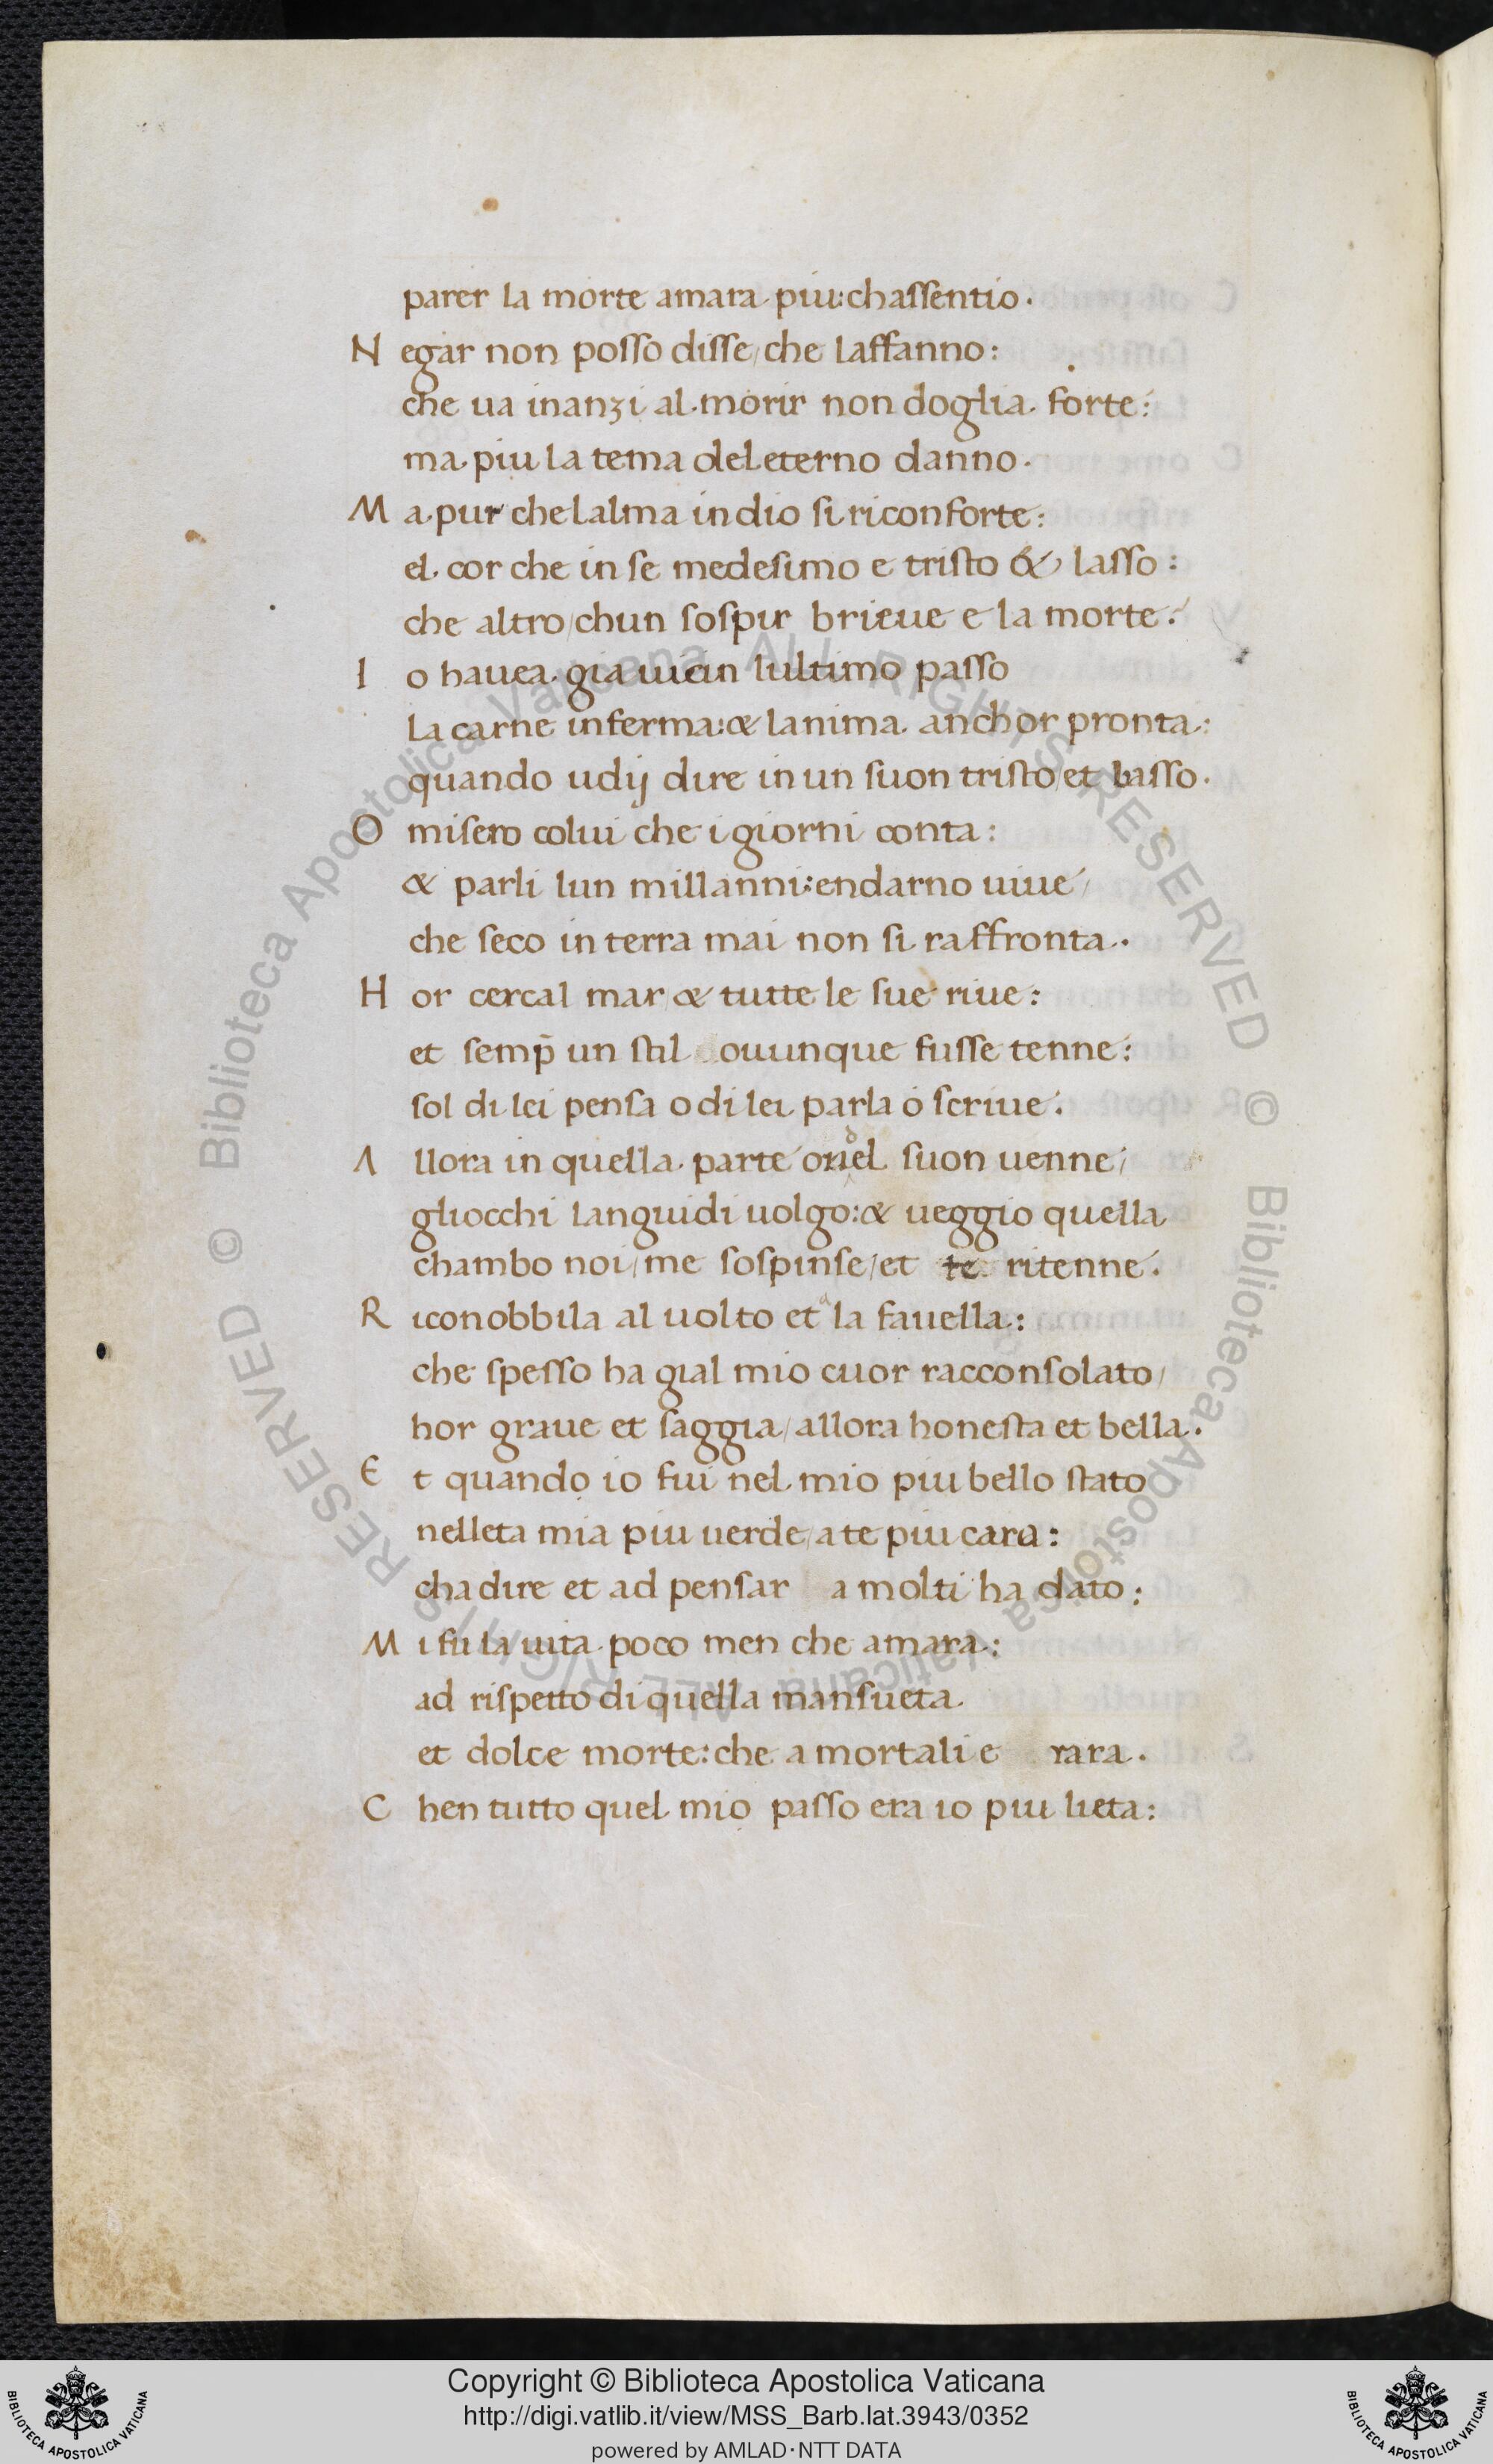 parer la morte amara piu: chassentio.
N egar non posso disse/ che laffanno:
che ua inanzi al morir non doglia forte:
ma piu la tema del eterno danno.
M a pur che lalma in dio si riconforte:
el cor che in se medesimo e tristo & lasso:
che altro/ chun sospir brieue e la morte.
I o hauea gia uicin lultimo passo
la carne inferma: & lanima anchor pronta:
quando udij dire in un suon tristo/ et basso.
O misero colui che i giorni conta:
& parli lun millanni: endarno uiue/
che seco in terra mai non si raffronta.
H or cercal mar/ & tutte le sue riue:
et semp̄ un stil ouunque fusse tenne:
sol di lei pensa o di lei parla o scriue.
A llora in quella parte ondel suon uenne/
gliocchi languidi uolgo: & ueggio quella
chambo noi/ me sospinse/ et te ritenne.
R iconobbila al uolto et a la fauella:
che spesso ha gial mio cuor racconsolato/
hor graue et saggia/ allora honesta et bella.
E t quando io fui nel mio piu bello stato
nelleta mia piu uerde/ a te piu cara:
cha dire et ad pensar a molti ha dato:
M i fu la uita poco men che amara:
ad rispetto di quella mansueta
et dolce morte: che a mortali e rara.
C hen tutto quel mio passo era io piu lieta:
Copyright © Biblioteca Apostolica Vaticana
http://digi.vatlib.it/view/MSS_Barb.lat.3943/0352
powered by AMLAD·NTT DATA
BIBLIOTECA APOSTOLICA VATICANA
BIBLIOTECA APOSTOLICA VATICANA
© Biblioteca Apostolica Vaticana ALL RIGHTS RESERVED © Biblioteca Apostolica Vaticana ALL RIGHTS RESERVED